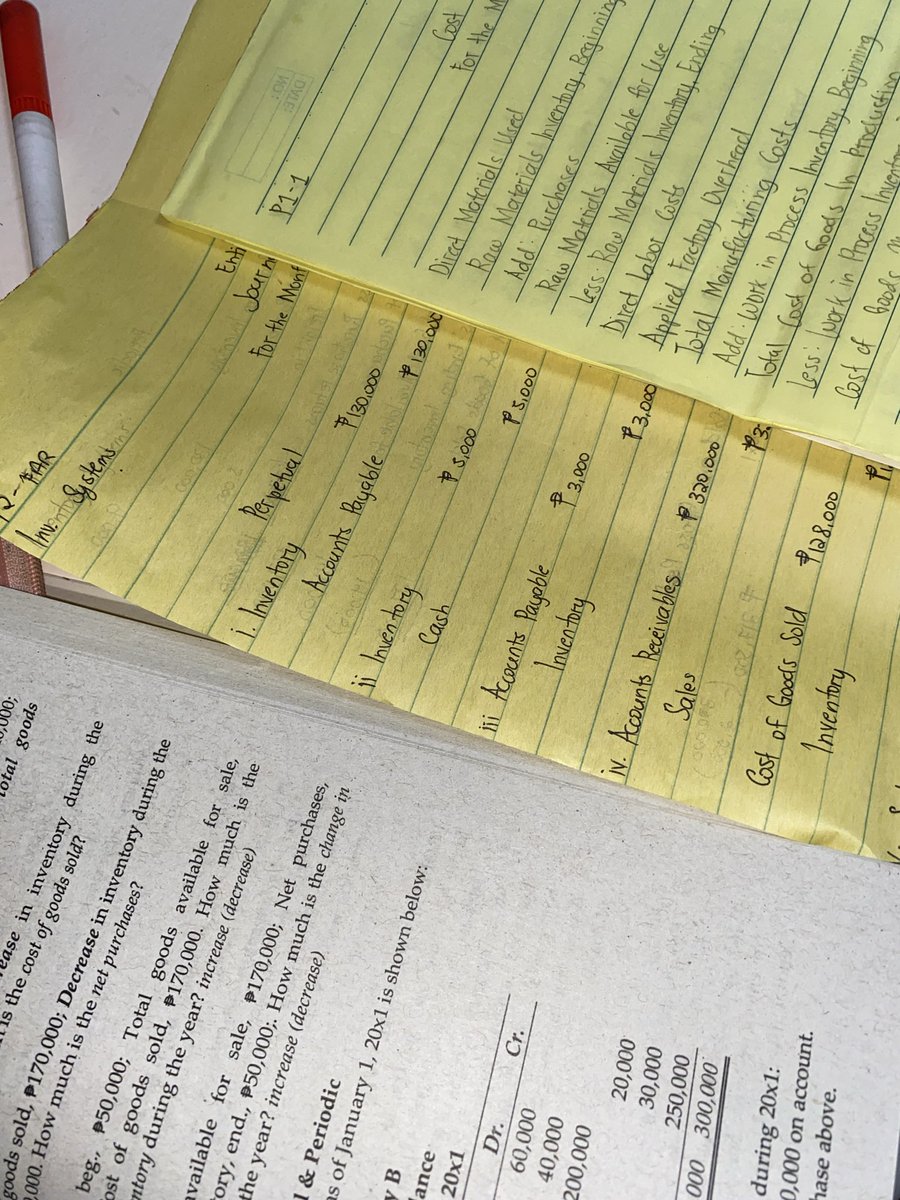 P1-1
Cost
For the M
Direct Materials Used
Raw Materials Inventory, Beginning
Add: Purchases
Raw Matrials Available for Use
Less: Raw Materials Inventory, Ending
Direct Labor Costs
Applied Factory Overhead
Total Manufacturing Costs
Add: Work in Process Inventory, Beginning
Total Cost of Goods In Production
Less: Work in Process Invent
Cost of Goods
FAR
Inv. Systems
Journ
For the Mont
Perpetual
i. Inventory ₱130,000
Accounts Payable ₱130,000
ii Inventory ₱5,000
Cash ₱5,000
iii Accounts Payable ₱3,000
Inventory ₱3,000
iv. Accounts Receivables ₱320,000
Sales ₱3
Cost of Goods Sold ₱128,000
Inventory ₱1
total goods
ease in inventory during the
is the cost of goods sold?
goods sold, ₱170,000; Decrease in inventory during the
000. How much is the net purchases?
beg., ₱50,000; Total goods available for sale,
ost of goods sold, ₱170,000. How much is the
ntory during the year? increase (decrease)
vailable for sale, ₱170,000; Net Purchases,
ory, end., ₱50,000;. How much is the change in
the year? increase (decrease)
l & Periodic
s of January 1, 20x1 is shown below:
y B
ance
20x1
Dr. Cr.
60,000
40,000
200,000
20,000
30,000
250,000
000 300,000
during 20x1:
,000 on account.
ase above.